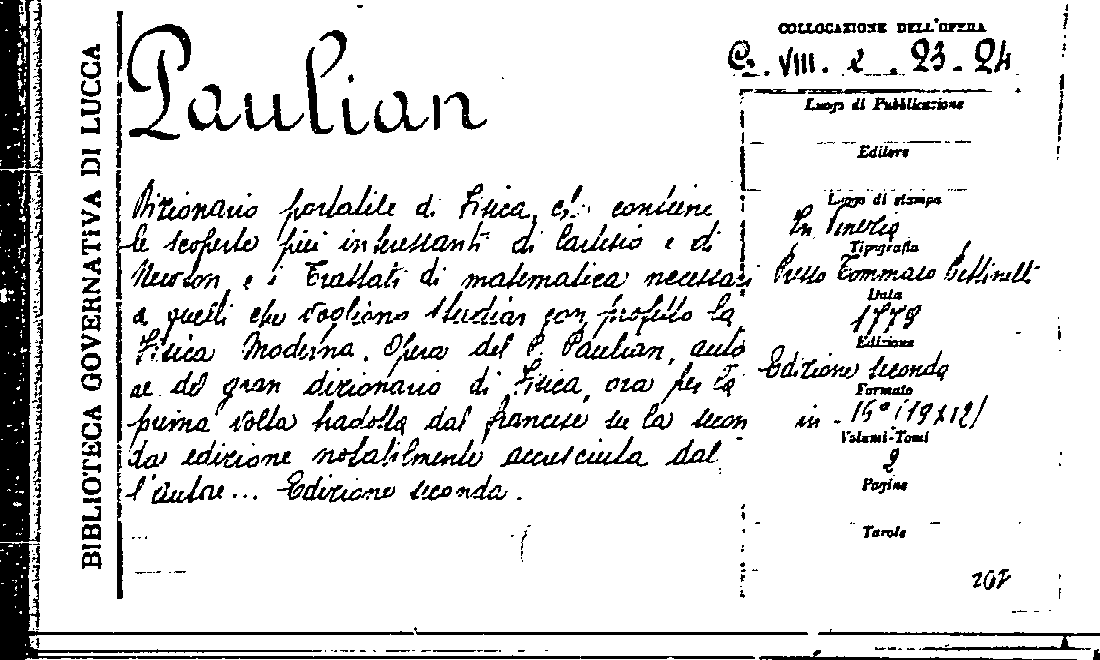 BIBLIOTECA GOVERNATIVA DI LUCCA
Paulian
Dizionario portatile di Fisica, c͞h contiene
le scoperte più interessanti di Cartesio e di
Newton, e i Trattati di matematica necessari
a quelli che vogliono studiar con profitto la
Fisica Moderna. Opera del P. Paulian, auto
re del gran dizionario di Fisica, ora per la
prima volta tradotta dal francese su la secon
da edizione notabilmente accresciuta dal
l'autore... Edizione seconda.
COLLOCAZIONE DELL'OPERA
C. VIII. 2. 23-24
Luogo di Pubblicazione
Editore
Luogo di stampa
In Venezia
Tipografia
Presso Tommaso Bettinelli
Data
Edizione
Edizione seconda
Formato
in - 15° (19x12)
Volumi-Tomi
2
Pagine
Tavole